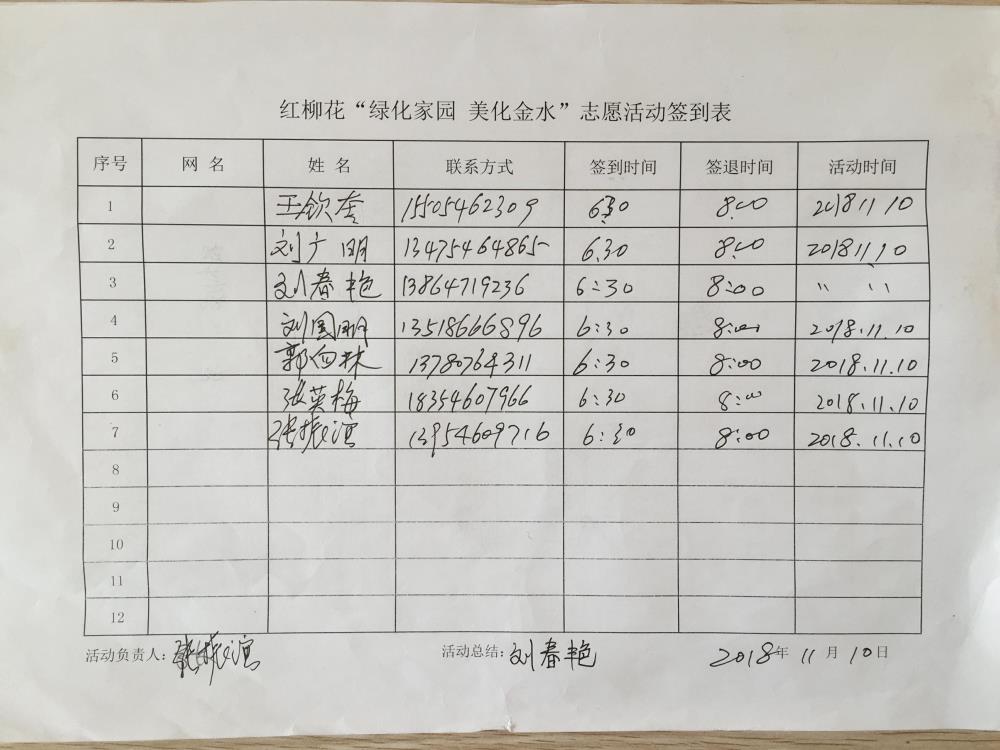 红柳花“绿化家园 美化金水”志愿活动签到表
序号 网 名 姓 名 联系方式 签到时间 签退时间 活动时间
1 王钦奎 15505462309 6:30 8:00 2018 11 10
2 刘广明 13475464865 6.30 8:00 2018 11.10
3 刘春艳 13864719236 6:30 8:00 〃 〃
4 刘国明 13518666896 6:30 8:00 2018.11.10
5 郭向林 13780764311 6:30 8:00 2018.11.10
6 张英梅 18354607966 6:30 8:00 2018.11.10
7 张振谊 13954609716 6:30 8:00 2018.11.10
8
9
10
11
12
活动负责人:张振谊 活动总结:刘春艳 2018年 11月 10日